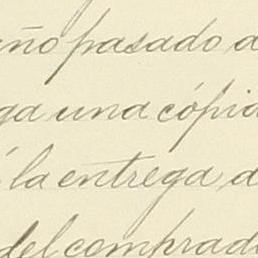 año pasado d
ga una cópia
á la entrega d
del comprado